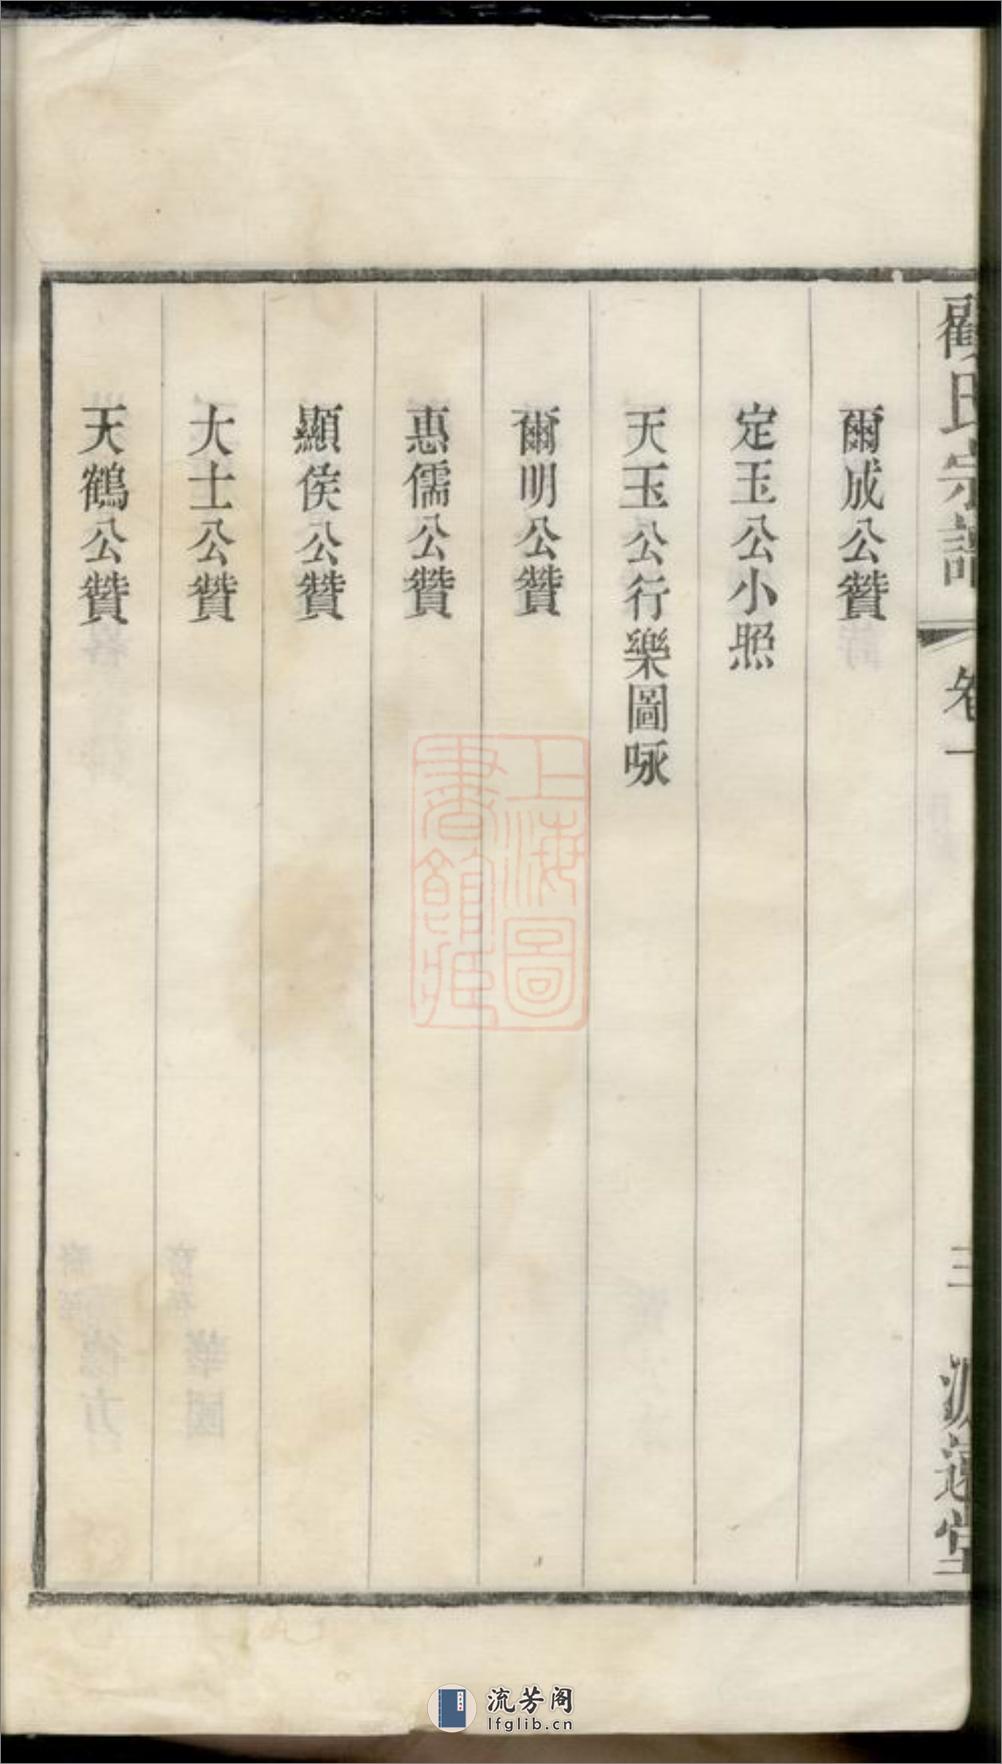 顧氏宗譜
卷一
三
源遠堂
爾成公贊
定玉公小照
天玉公行樂圖咏
爾明公贊
惠儒公贊
顯侯公贊
大士公贊
天鶴公贊
上海圖
書館藏
流芳阁
lfglib.cn